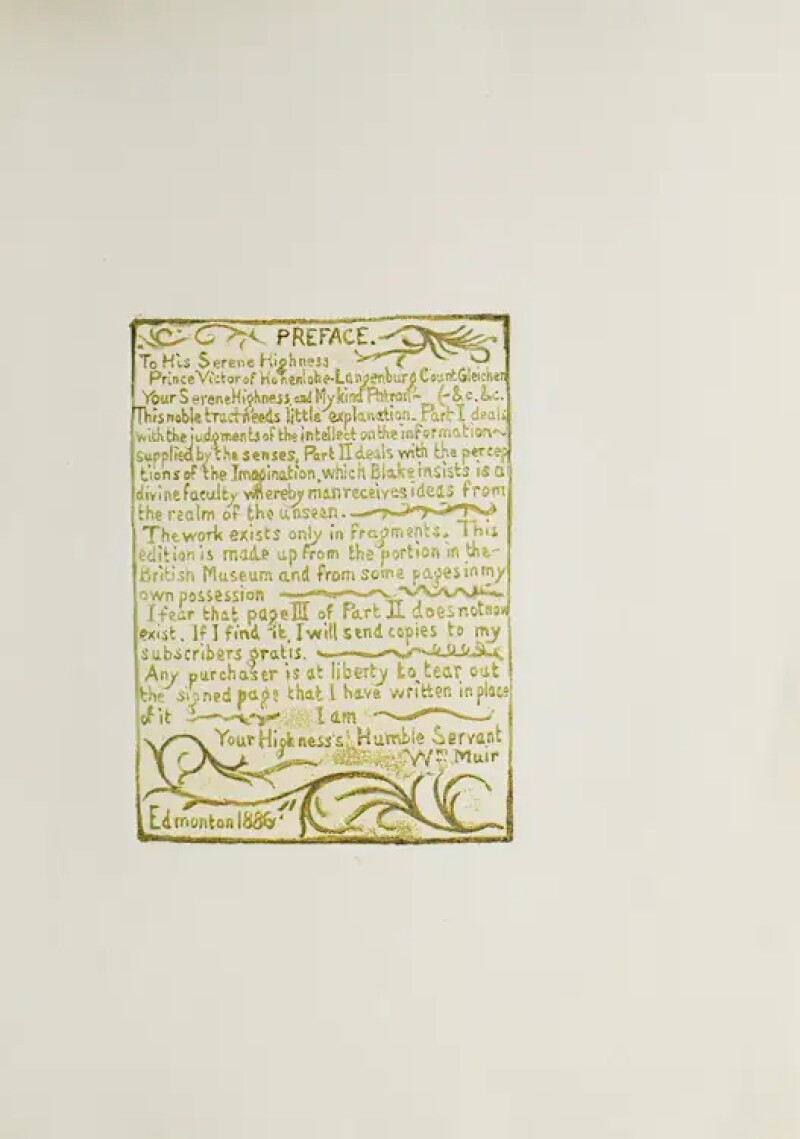 PREFACE.
To His Serene Highness
Prince Victor of Hohenlohe-Langenburg Count Gleichen
Your Serene Highness and My kind Patron- (-&c. &c.
This noble tract needs little explanation. Part I deals
with the judgments of the intellect on the information
supplied by the senses, Part II deals with the percep
tions of the Imagination, which Blake insists is a
divine faculty whereby man receives ideas from
the realm of the unseen.
The work exists only in fragments. This
edition is made up from the portion in the
British Museum and from some pages in my
own possession
I fear that page III of Part II does not now
exist. If I find it, I will send copies to my
subscribers gratis.
Any purchaser is at liberty to tear out
the signed page that I have written in place
of it I am
Your Highness's Humble Servant
Wm Muir
Edmonton 1886